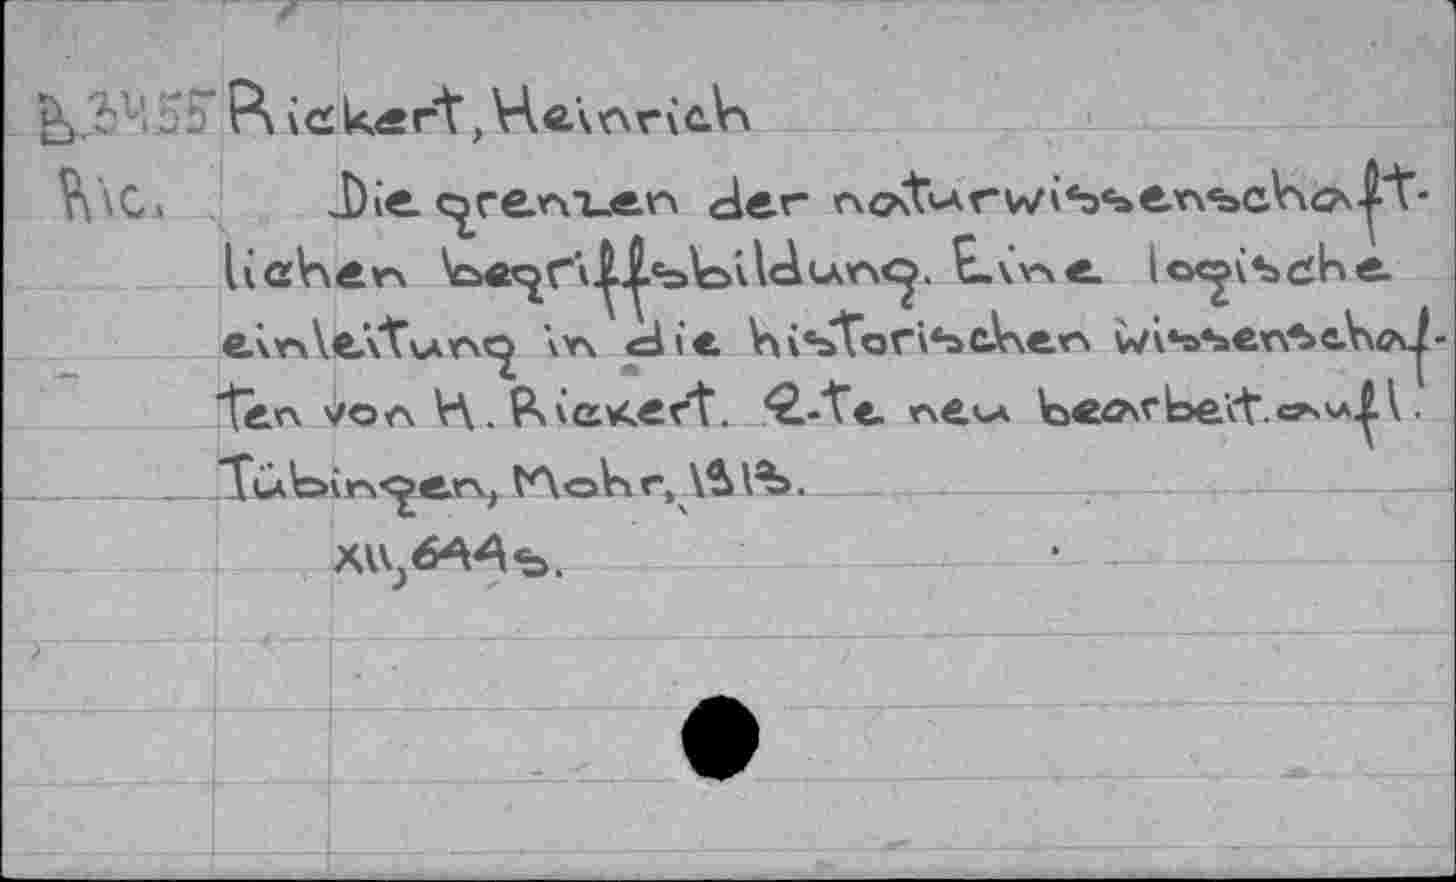 B.3455 Rickert, Heinrich
Ric. Die grenzen der naturwissenschaft-
lichen begriffsbildung. Eine logische
einleitung in die historischen wissenschaf-
ten von H. Rickert. 2-te neu bearbeit. aufl.
Tübingen, Mohr, 1913.
XII, 644 s.